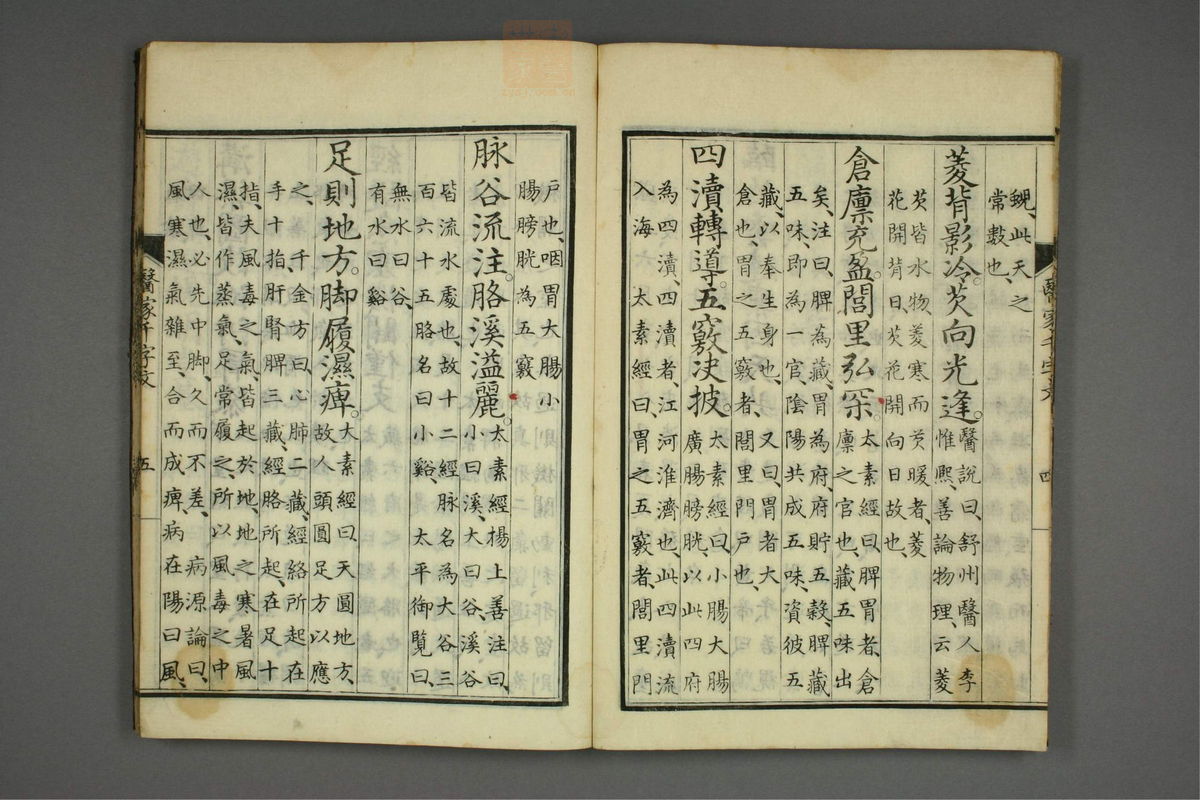 此天之
常數也、
菱背影冷。芡向光逢。
醫說曰、舒州醫人李
惟熙、善論物理云菱
芡皆水物、菱寒而芡暖者、菱
花開背日、芡花開向日故也、
倉廩充盈。閭里弘罙。
太素經曰、脾胃者、倉
廩之官也、藏五味出
矣、注曰、脾為藏、胃為府、府貯五穀、脾藏
五味、即為一官陰陽共成五味、資彼五
藏、以奉生身也、又曰、胃者大
倉也、胃之五竅者、閭里門戶也
四瀆轉導。五竅决披。
太素經曰、小腸大腸
廣腸膀胱、以此四府
為四瀆、四瀆者、江河淮濟也、此四瀆流
入海 太素經曰、胃之五竅者、閭里門
醫家千字文 四
戶也、咽胃大腸小
腸膀胱為五竅
脉谷流注。胳溪溢麗。
太素經楊上善注曰、
小曰溪、大曰谷、溪谷
皆流水處也、故十二經脉名為大谷、三
百六十五胳名曰小谿、太平御覧曰、
無水曰谷、
有水曰谿
足則地方。脚履濕痺。
太素經曰、天圓地方
故、人頭圓足方以應
之、千金方曰、心肺二藏、經絡所起在
手十指、肝腎脾三藏、經胳所起、在足十
指、夫風毒之氣、皆起於地、地之寒暑風
濕、皆作蒸氣、足常履之、所以風毒之中
人也、必先中脚、久而不差、病源論曰、
風寒濕氣雜至合而成痺、病在陽曰風、
醫家千字文 五